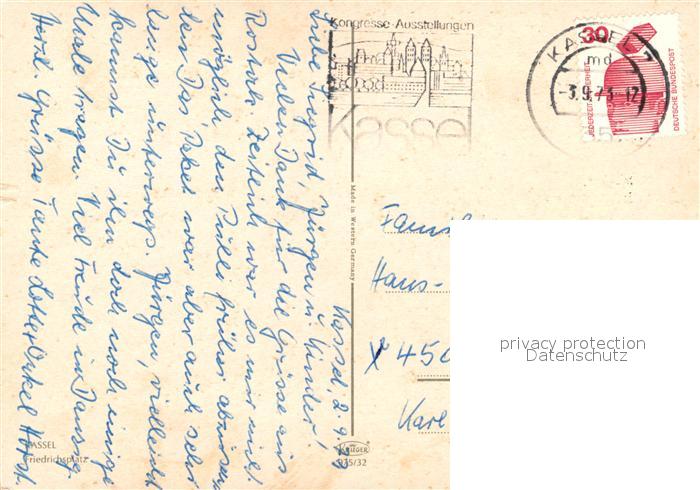 Kassel 2.9.73
Liebe Ingrid, Jürgen u. Kinder!
Vielen Dank für die Grüsse aus
Zeitlich war es mir nicht
möglich den Pulli früher abzusen-
den. Das Paket war aber auch sehr
lange unterwegs. Jürgen, vielleicht
kannst Du ihn doch noch einige
Male tragen. Viel Freude in
Herzl. Grüsse Tante Lotte u. Onkel Horst.
Kongresse · Ausstellungen
Kassel
KASSEL 7
md
-3.9.73-12
30
JEDERZEIT SICHERHEIT
DEUTSCHE BUNDESPOST
Made in Western Germany
Hans-
450
Karl
KASSEL
Friedrichsplatz
KRÜGER
975/32
privacy protection
Datenschutz